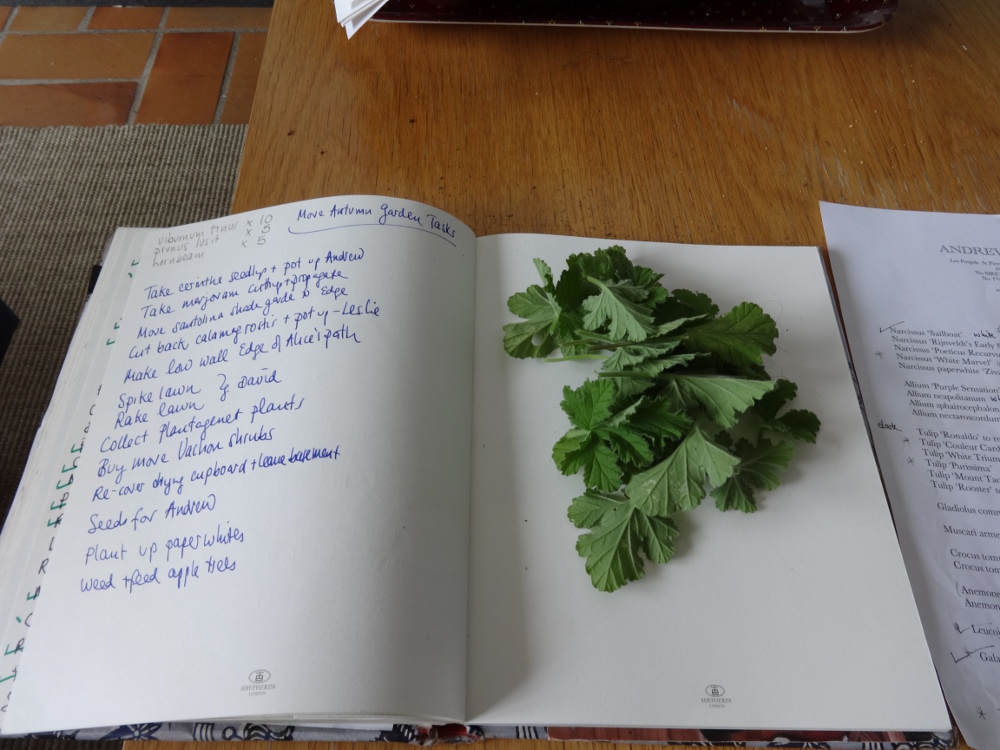 viburnum tinus x 10
prunus lusit x 5
hornbeam x 5
Move Autumn Garden Tasks
Take cerinthe seedlings + pot up Andrew
Take marjoram cuttings + propagate
Move santolina shade garde to Edge
Cut back calamagrostis + pot up - Leslie
Make low wall Edge of Alice's path
Spike lawn
Rake lawn } David
Collect plantagenet plants
Buy move Vachon shrubs
Re-cover drying cupboard + leave basement
Seeds for Andrew
Plant up paperwhites
Weed + feed apple trees
SHEPHERDS
LONDON
SHEPHERDS
LONDON
ANDREW
Narcissus 'Sailboat'
Narcissus 'Rijnveld's Early S
Narcissus 'Poeticus Recurv
Narcissus 'White Marvel'
Narcissus paperwhite 'Ziva
Allium 'Purple Sensation
Allium neapolitanum
Allium sphaerocephalon
Allium nectaroscordum
dark
Tulip 'Ronaldo' to re
Tulip 'Couleur Card
Tulip 'White Trium
Tulip 'Purissima'
Tulip 'Mount Tac
Tulip 'Rooster' te
Gladiolus comm
Muscari arme
Crocus tom
Crocus tom
(Anemone
Anemon
Leucoj
Gala